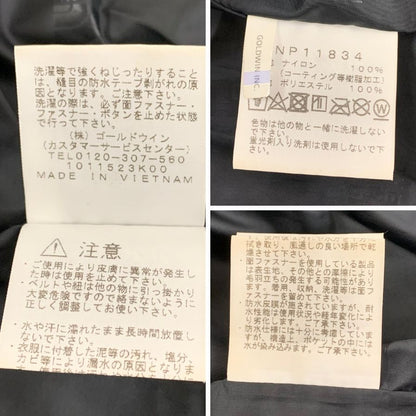 洗濯等で強くねじったりすること
は、縫目の防水テープ剥がれの原
因となります。ご注意下さい。
洗濯の際は、必ず面ファスナー・
ファスナー・ボタンを止めた状態
で行って下さい。
(株) ゴールドウイン
(カスタマーサービスセンター)
TEL0120-307-560
1011523K00
MADE IN VIETNAM
注意
・ご使用により皮膚に異常が発生し
た時は使用を止めて下さい。
・ベルトや紐は他の物に引っ掛かり
大変危険ですので絡まないように
正しく調整してお使い下さい。
・水や汗に濡れたまま長時間放置し
ないで下さい。
・衣服に付着した泥等の汚れ、塩分、
カビ等により漏水の原因となります
GOLDWIN INC.
NP11834
ナイロン 100%
(コーティング等樹脂加工)
ポリエステル 100%
色物は他の物と一緒に洗濯しない
で下さい。
蛍光剤入り洗剤は使用しないで下
さい。
拭き取り、風通しの良い場所で乾
燥させて下さい。
・面ファスナーを使用している製品
は表生地、その他との摩擦により
毛羽立ちの発生する可能性があり
ます。着用、収納、洗濯等は面フ
ァスナーを留めて下さい。
・防水皮膜が施されていますが、耐
水性能は使用状況や経年変化によ
り低下します。ご了承下さい。
・防水仕様には十分に考慮していま
すが、構造上、ポケットの中には
水が染み込みます。ご了承下さい。